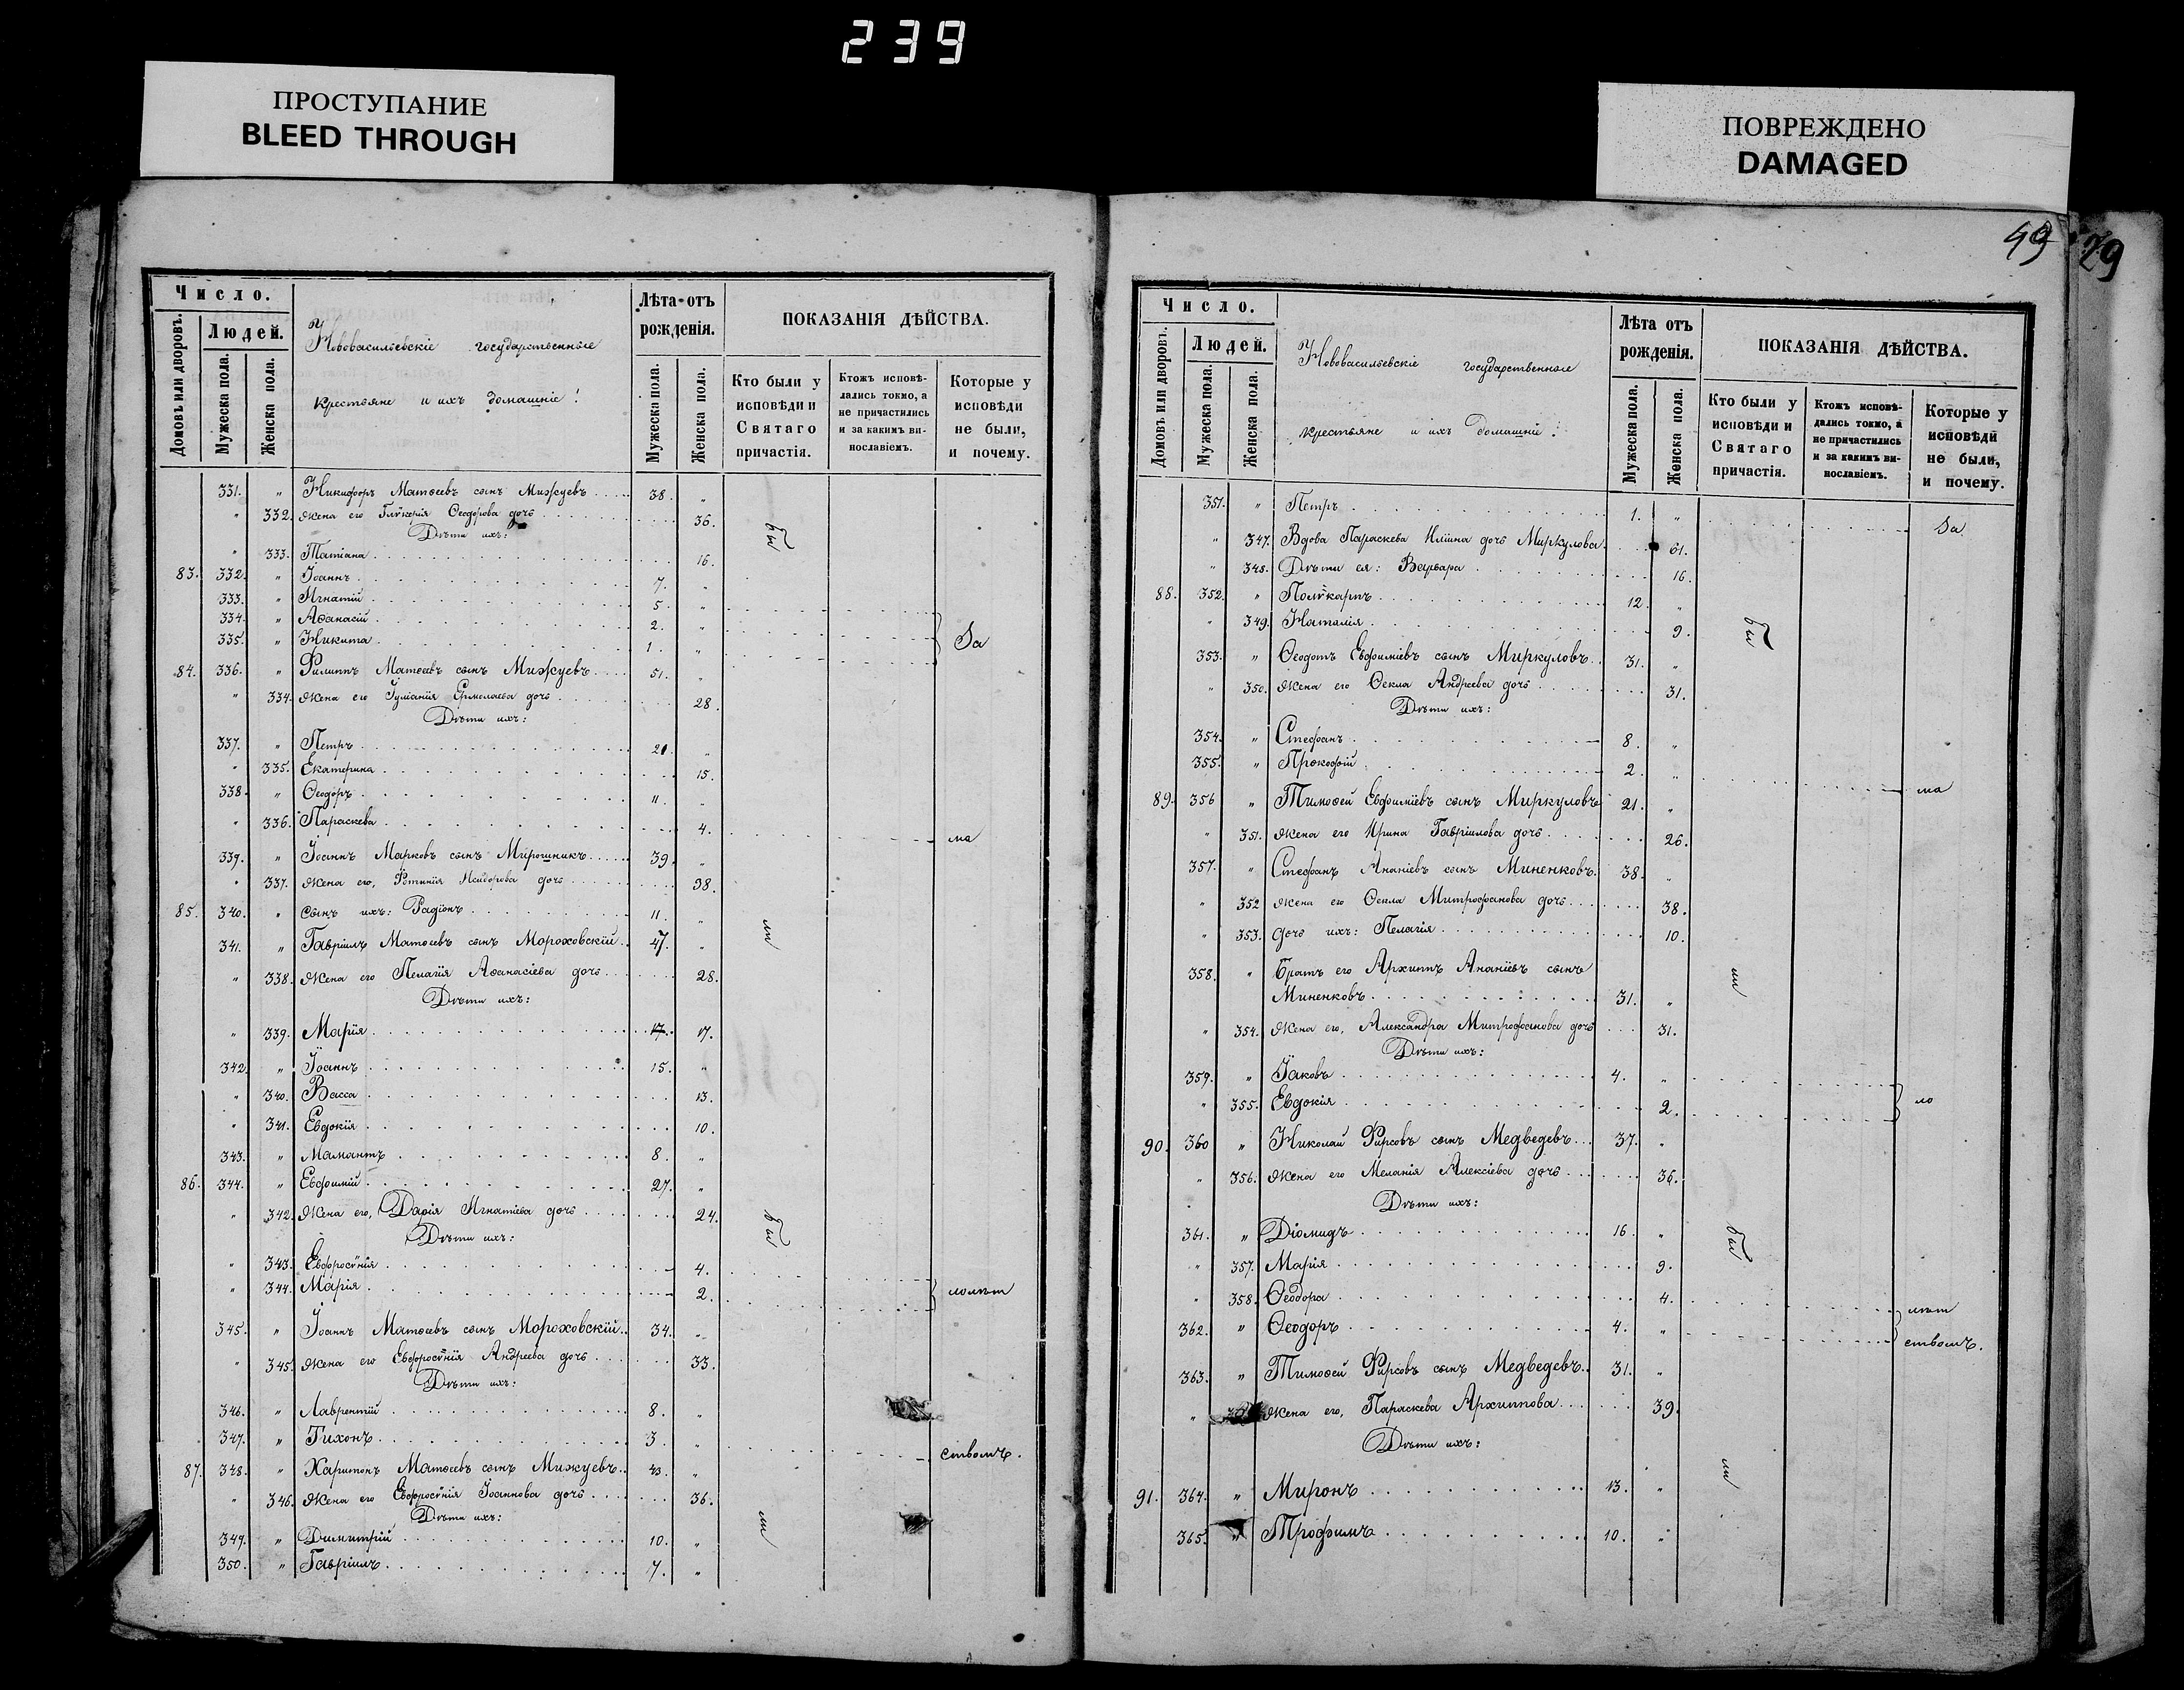 239
ПРОСТУПАНИЕ
BLEED THROUGH
ПОВРЕЖДЕНО
DAMAGED
49 79
Число.
Домовъ или дворовъ.
Людей.
Мужеска пола.
Женска пола.
Нововасильевскіе государственные
крестьяне и ихъ домашніе:
Лѣта отъ рожденія.
Мужеска пола.
Женска пола.
ПОКАЗАНІЯ ДѢЙСТВА.
Кто были у исповѣди и Святаго причастія.
Ктожъ исповѣ-дались токмо, а не причастились и за какимъ ви-нословіемъ.
Которые у исповѣди не были, и почему.
331. " Никифоръ Матѳеевъ сынъ Мижуевъ 38. "
" 332. Жена его Глѵкерія Ѳеодорова дочь 36. бы
Дѣти ихъ:
" 333. Татіана 16.
83. 332. " Іоаннъ 7. "
333. " Игнатій 5. "
334. " Аѳанасій 2. "
335. " Никита 1. " За
84. 336. " Филиппъ Матѳеевъ сынъ Мижуевъ 51. "
" 334. Жена его Іуліанія Ермолаева дочь 28.
Дѣти ихъ:
337. " Петръ 20. "
" 335. Екатерина 15.
338. " Ѳеодоръ 11. "
" 336. Параскева 4. ма
339. " Іоаннъ Марковъ сынъ Мирошникъ 39. "
" 337. Жена его, Фотинія Исидорова дочь 38.
85. 340. " Сынъ ихъ: Радіонъ 11. " ли
341. " Гавріилъ Матѳеевъ сынъ Мороховскій 47. "
" 338. Жена его Пелагія Аѳанасіева дочь 28.
Дѣти ихъ:
" 339. Марія 17. 17.
342. " Іоаннъ 15. "
" 340. Васса 13.
" 341. Евдокія 10.
343. " Мамантъ 8. "
86. 344. " Евфимій 27. "
" 342. Жена его, Дарія Игнатіева дочь 24. бы
Дѣти ихъ:
" 343. Евфросѵнія 4.
" 344. Марія 2. лолѣт
345. " Іоаннъ Матѳеевъ сынъ Мороховскій 34. "
" 345. Жена его Евфросѵнія Андреева дочь 33.
Дѣти ихъ:
346. " Лаврентій 8. "
347. " Тихонъ 3. " ствомъ.
87. 348. " Харитонъ Матѳеевъ сынъ Мижуевъ 43. "
" 346. Жена его Евфросѵнія Іоаннова дочь 36.
Дѣти ихъ: ли
349. " Димитрій 10. "
350. " Гавріилъ 7. "
Число.
Домовъ или дворовъ.
Людей.
Мужеска пола.
Женска пола.
Нововасильевскіе государственные
крестьяне и ихъ домашніе:
Лѣта отъ рожденія.
Мужеска пола.
Женска пола.
ПОКАЗАНІЯ ДѢЙСТВА.
Кто были у исповѣди и Святаго причастія.
Ктожъ исповѣ-дались токмо, а не причастились и за какимъ ви-нословіемъ.
Которые у исповѣди не были, и почему.
351. " Петръ 1. " За
" 347. Вдова Параскева Иліина дочь Миркулова 61.
" 348. Дѣти ея: Варвара 16.
88. 352. " Полѵкарпъ 12. "
" 349. Наталія 9. бы
353. " Ѳеодотъ Евфиміевъ сынъ Миркуловъ 31. "
" 350. Жена его Ѳекла Андреева дочь 31.
Дѣти ихъ:
354. " Стефанъ 8. "
355. " Прокофій 2. " ма
89. 356 " Тимоѳей Евфиміевъ сынъ Миркуловъ 21. "
" 351. Жена его Ирина Гавріилова дочь 26.
357. " Стефанъ Ананіевъ сынъ Миненковъ 38. "
" 352 Жена его Ѳекла Митрофанова дочь 38.
" 353. Дочь ихъ: Пелагія 10.
358. " Братъ его Архиппъ Ананіевъ сынъ ли
Миненковъ 31. "
" 354. Жена его, Александра Митрофанова дочь 31.
Дѣти ихъ:
359. " Іаковъ 4. "
" 355. Евдокія 2. ло
90. 360 " Николай Фирсовъ сынъ Медведевъ 37. "
" 356. Жена его Меланія Алексіева дочь 36.
Дѣти ихъ:
361. " Діомидъ 16. " бы
" 357. Марія 9.
" 358. Ѳеодора 4. лѣт
362. " Ѳеодоръ 4. " ствомъ.
363. " Тимоѳей Фирсовъ сынъ Медведевъ 31. "
" Жена его, Параскева Архиппова 39.
Дѣти ихъ:
ли
91. 364. " Миронъ 13. "
365. " Трофимъ 10. "